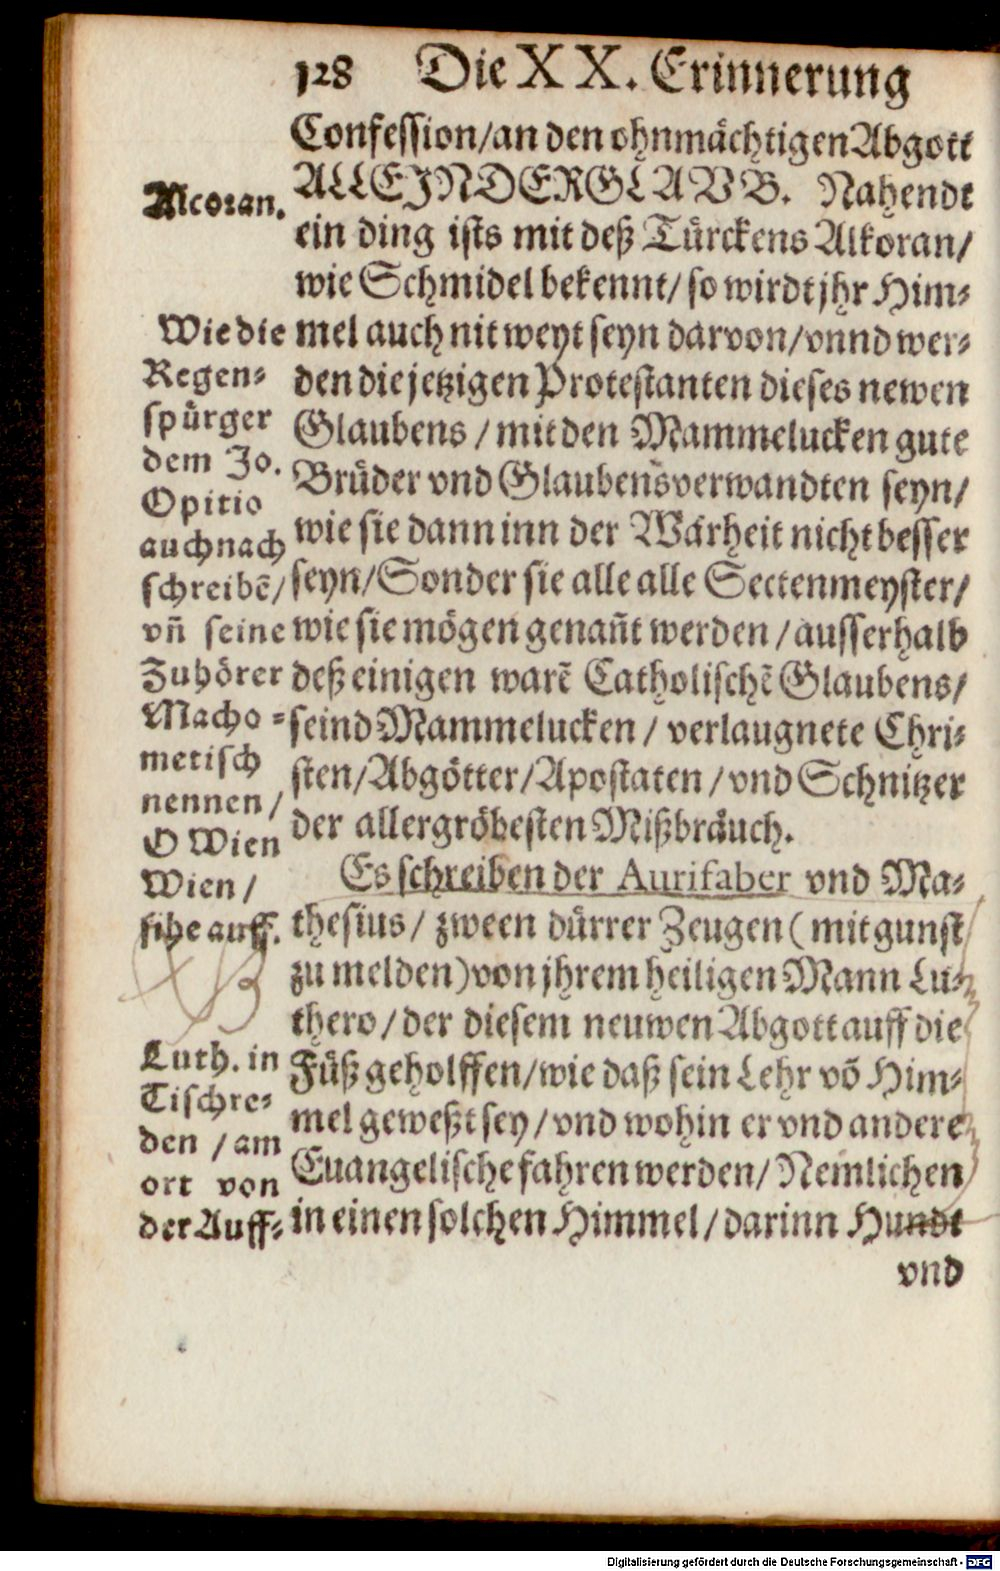 128 Die XX. Erinnerung
Confession/an den ohnmächtigen Abgott
ALLEJNDERGLAVB. Nahendt
ein ding ists mit deß Türckens Alkoran/
wie Schmidel bekennt/ so wirdt jhr Him-
mel auch nit weyt seyn darvon/vnnd wer-
den die jetzigen Protestanten dieses newen
Glaubens / mit den Mammelucken gute
Brüder vnd Glaubensverwandten seyn/
wie sie dann inn der Warheit nicht besser
seyn/Sonder sie alle alle Sectenmeyster/
wie sie mögen genañt werden / ausserhalb
deß einigen warẽ Catholischẽ Glaubens/
seind Mammelucken / verlaugnete Chri-
sten/Abgötter/Apostaten / vnd Schnitzer
der allergröbesten Mißbräuch.
Es schreiben der Aurifaber vnd Ma-
thesius/ zween dürrer Zeugen (mit gunst
zu melden) von jhrem heiligen Mann Lu-
thero/der diesem neuwen Abgott auff die
Füß geholffen/wie daß sein Lehr võ Him-
mel geweßt sey/vnd wohin er vnd andere
Euangelische fahren werden/ Nemlichen
in einen solchen Himmel/darinn Hundt
vnd
Alcoran.
Wie die
Regen-
spürger
dem Jo.
Opitio
auch nach
schreibẽ/
vñ seine
Zuhörer
Macho-
metisch
nennen/
O Wien
Wien/
sihe auff.
Luth. in
Tischre-
den / am
ort von
der Auff-
Digitalisierung gefördert durch die Deutsche Forschungsgemeinschaft - DFG